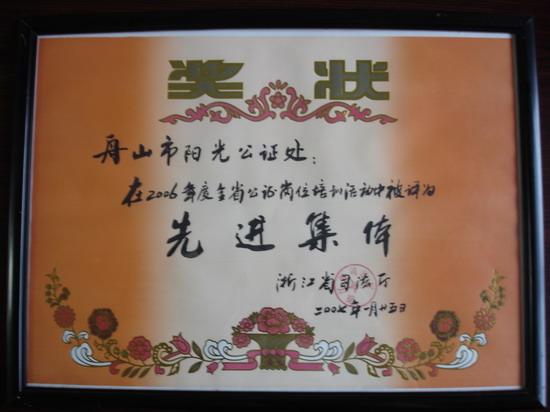 奖状
舟山市阳光公证处：
在2006年度全省公证岗位培训活动中被评为
先进集体
浙江省司法厅
二00七年一月廿五日